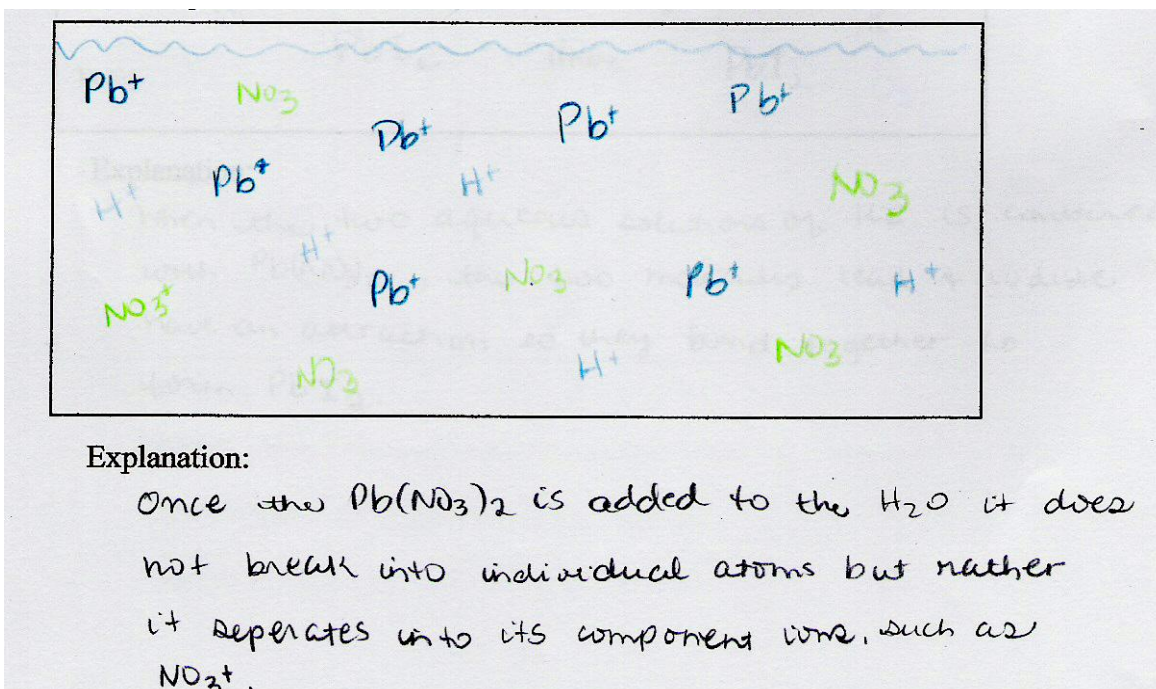 Pb+ NO3 Pb+ Pb+ Pb+
Pb+ H+ NO3
H+ H+
Pb+ NO3 Pb+ H+
NO3+
NO3 H+ NO3
Explanation:
Once the Pb(NO3)2 is added to the H2O it does
not break into individual atoms but rather
it seperates into its component ions, such as
NO3+.